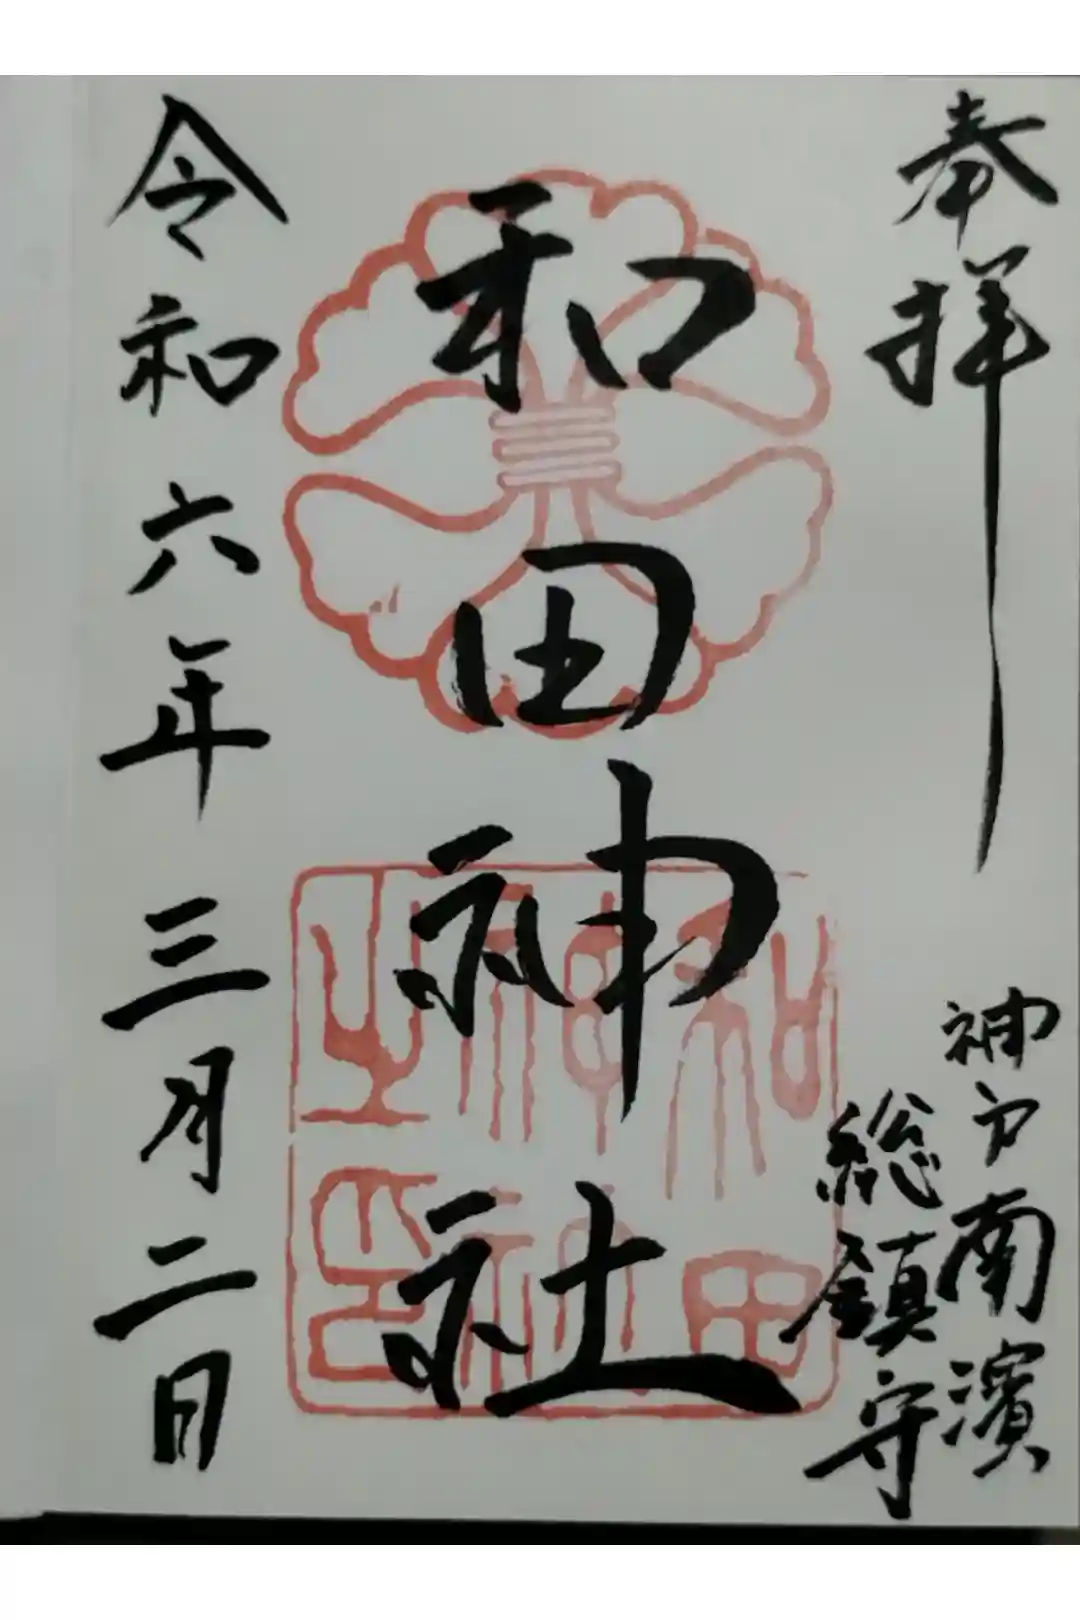 奉拝
神戸南濱
総鎮守
和田神社
和田
神社
之印
令和六年三月二日